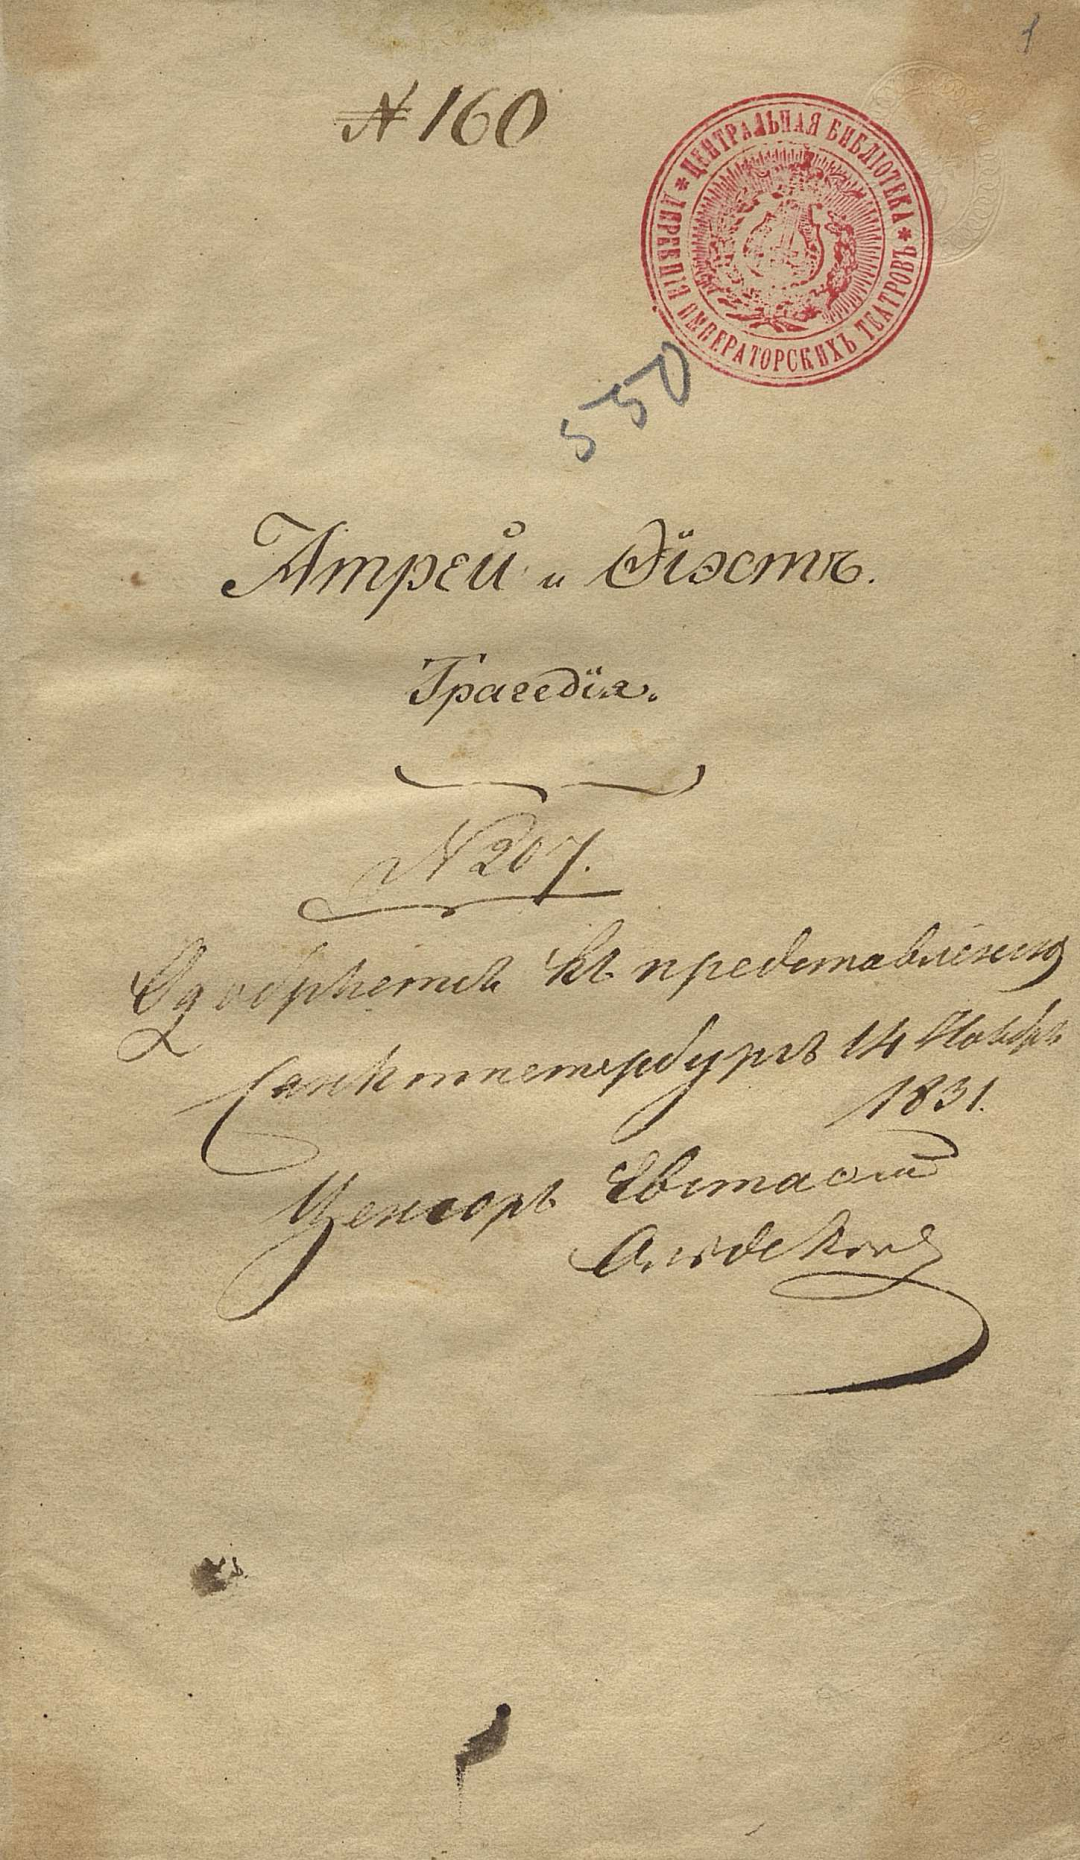 1
№ 160
* ЦЕНТРАЛЬНАЯ БИБЛІОТЕКА * ДИРЕКЦІИ ИМПЕРАТОРСКИХЪ ТЕАТРОВЪ
550
Атрей и Ѳіэстъ.
Трагедія.
N 207.
Одобряется къ представленію
Санктпетербургъ 14 Ноября
1831.
Ценсоръ Евстафий
Ольдекопъ